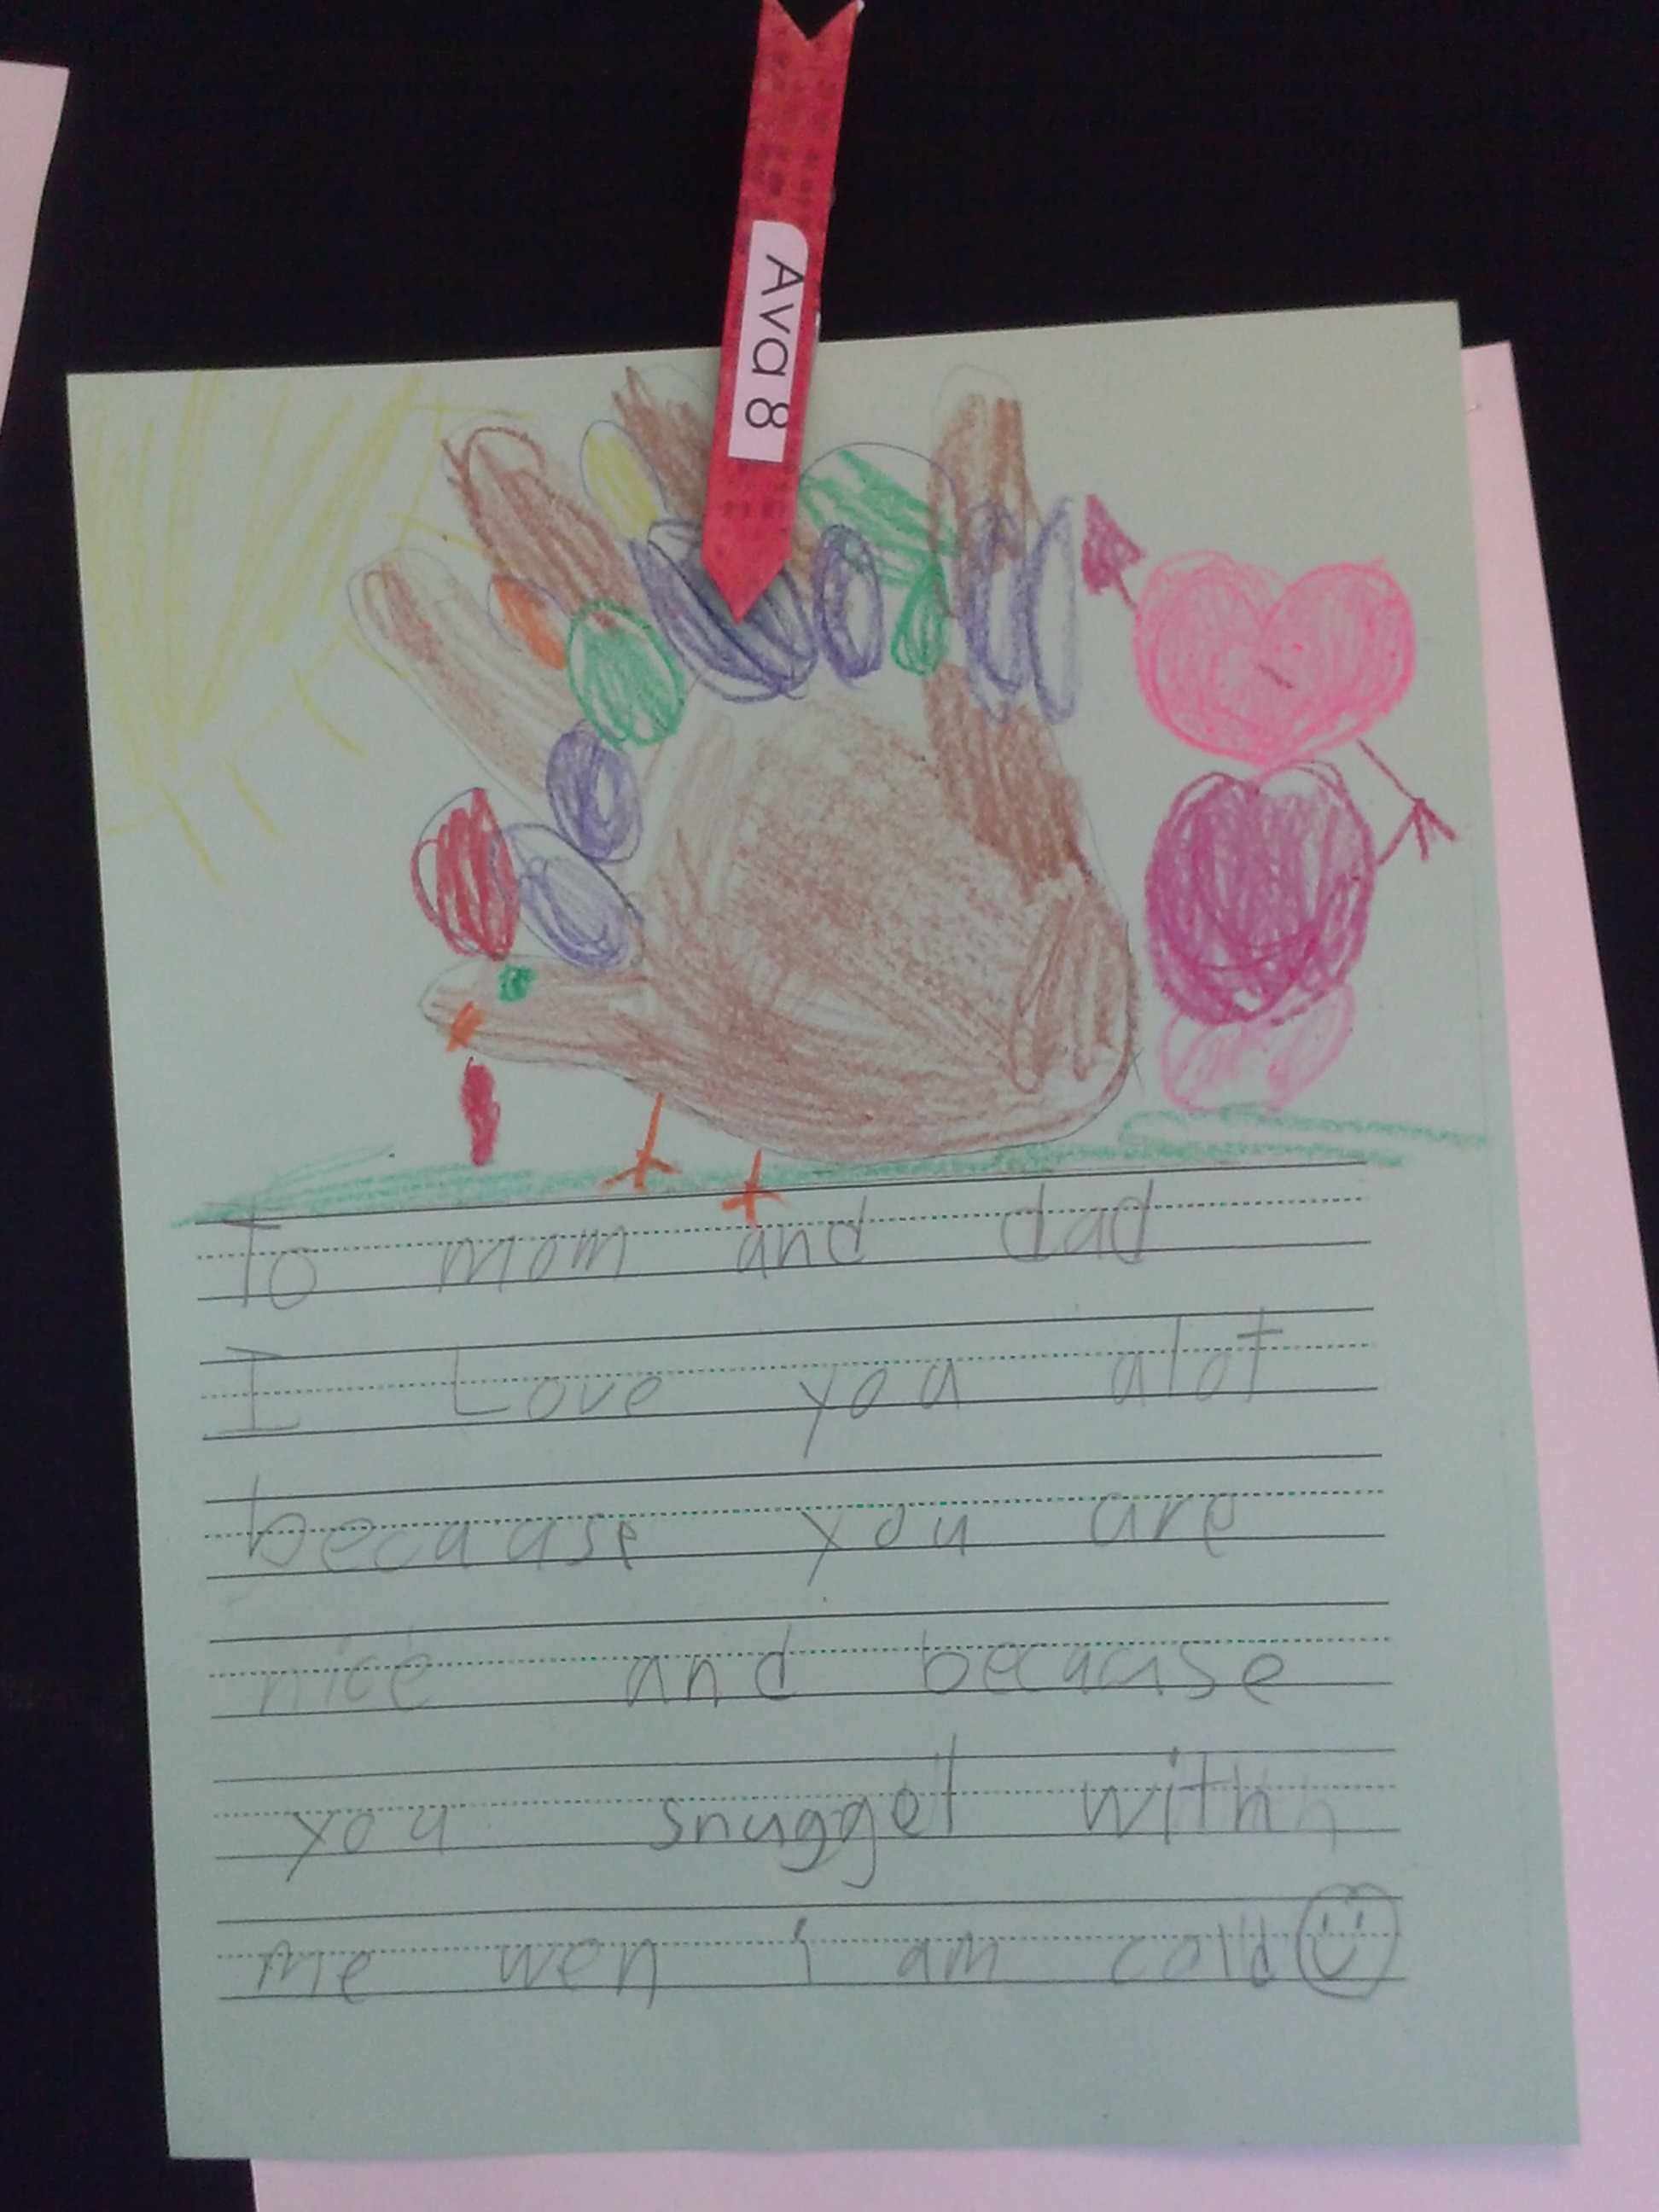 Ava 8
To mom and dad
I Love you alot
because you are
nice and because
you snuggel with
me wen i am cold